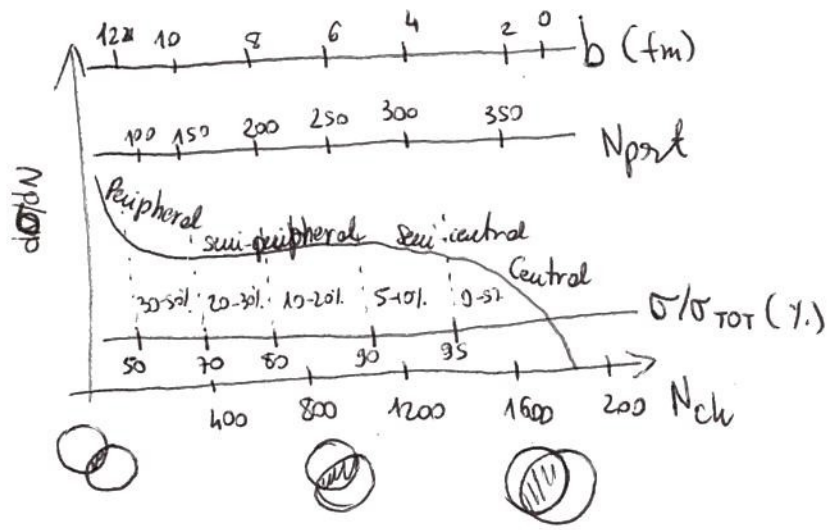 12 10 8 6 4 2 0 b (fm)
100 150 200 250 300 350 Nprt
dσ/dN
Peripheral
semi-peripheral semi-central
Central
30-50% 20-30% 10-20% 5-10% 0-5%
σ/σTOT (%)
50 70 80 90 95
400 800 1200 1600 200 Nch